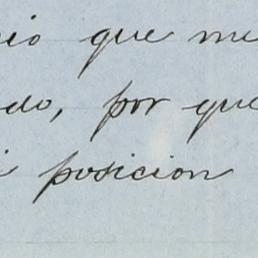 nio que me
do, por que
i posicion